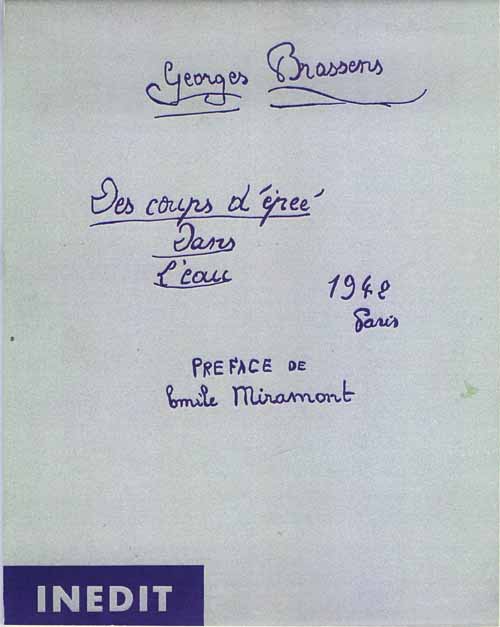 Georges Brassens
Des coups d'épeé
Dans
l'eau
1942
Paris
PREFACE DE
Emile Miramont
INEDIT